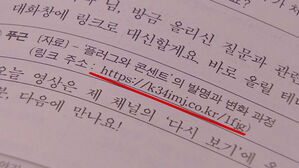 님, 방금 올리신 질문과 관련
대화창에 링크로 대신할게요. 바로 올릴 테
푸근 (자료) - '플러그와 콘센트'의 발명과 변화 과정
(링크 주소 : https://k34imj.co.kr/1fjg)
오늘 영상은 제 채널의 '다시 보기'에
분, 다음에 만나요!